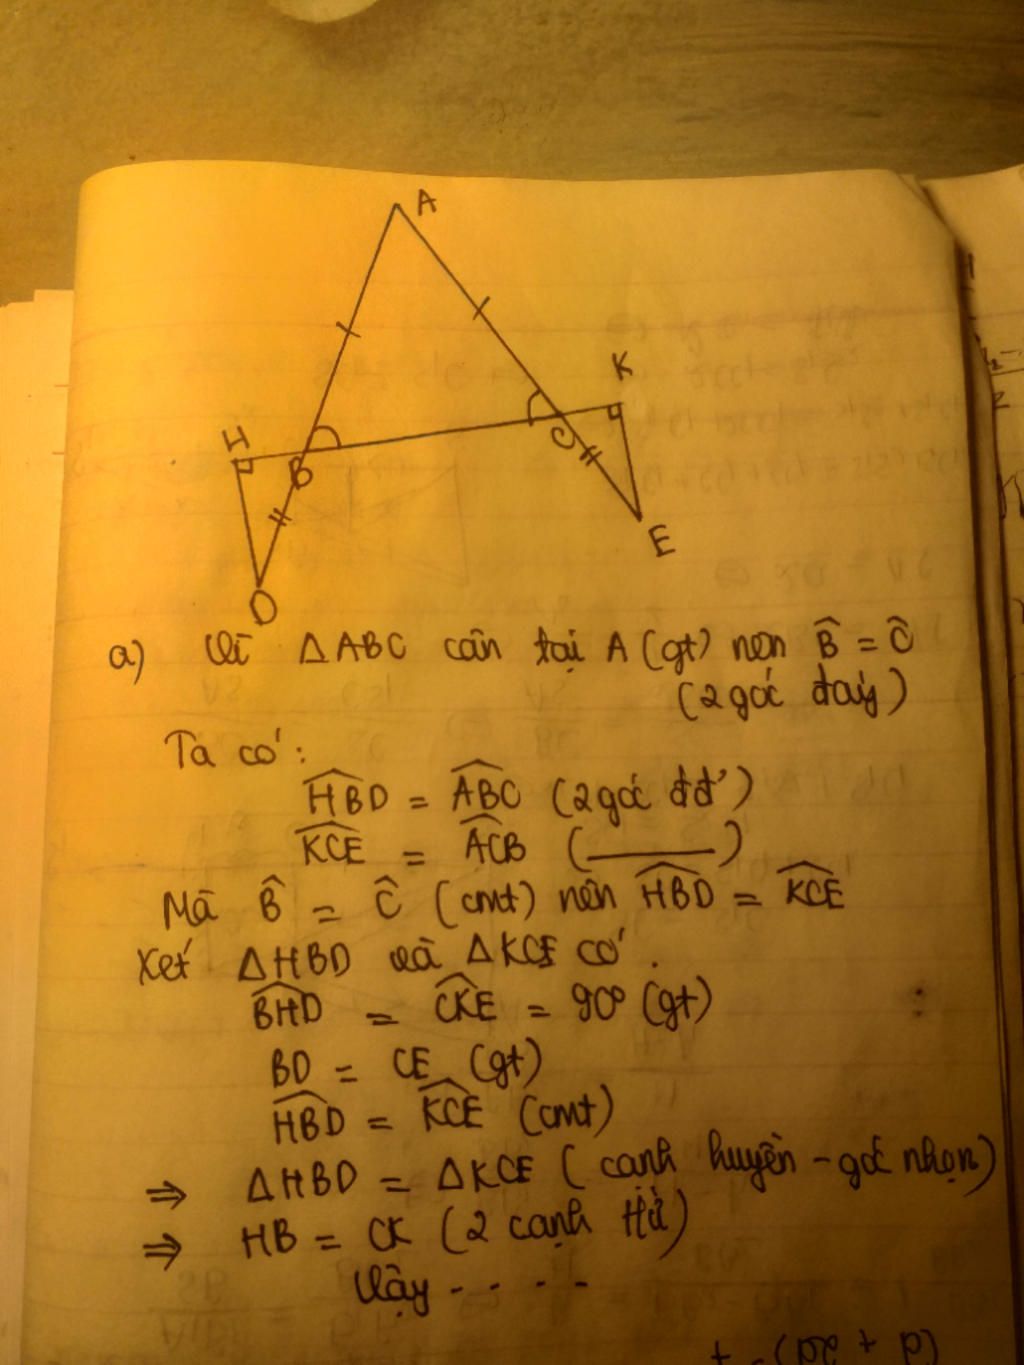 A
K
H
B
C
E
D
a) Vì ΔABC cân tại A (gt) nên B̂ = Ĉ
(2 góc đáy)
Ta có:
\widehat{HBD} = \widehat{ABC} (2 góc đđ')
\widehat{KCE} = \widehat{ACB} (______)
Mà B̂ = Ĉ (cmt) nên \widehat{HBD} = \widehat{KCE}
Xét ΔHBD và ΔKCE có:
\widehat{BHD} = \widehat{CKE} = 90° (gt)
BD = CE (gt)
\widehat{HBD} = \widehat{KCE} (cmt)
⇒ ΔHBD = ΔKCE (cạnh huyền - góc nhọn)
⇒ HB = CK (2 cạnh tứ)
Vậy - - - -